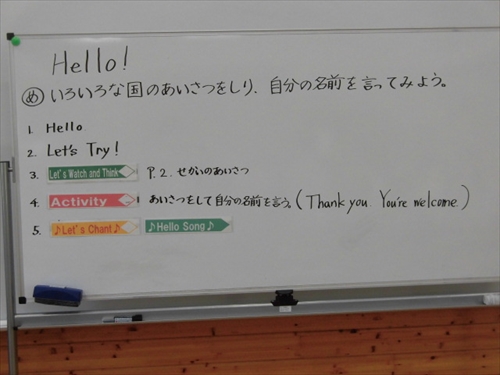 Hello!
め いろいろな国のあいさつをしり、自分の名前を言ってみよう。
1. Hello.
2. Let's Try!
3. Let's Watch and Think P.2. せかいのあいさつ
4. Activity あいさつをして自分の名前を言う。(Thank you. You're welcome.)
5. ♪Let's Chant♪ ♪Hello Song♪